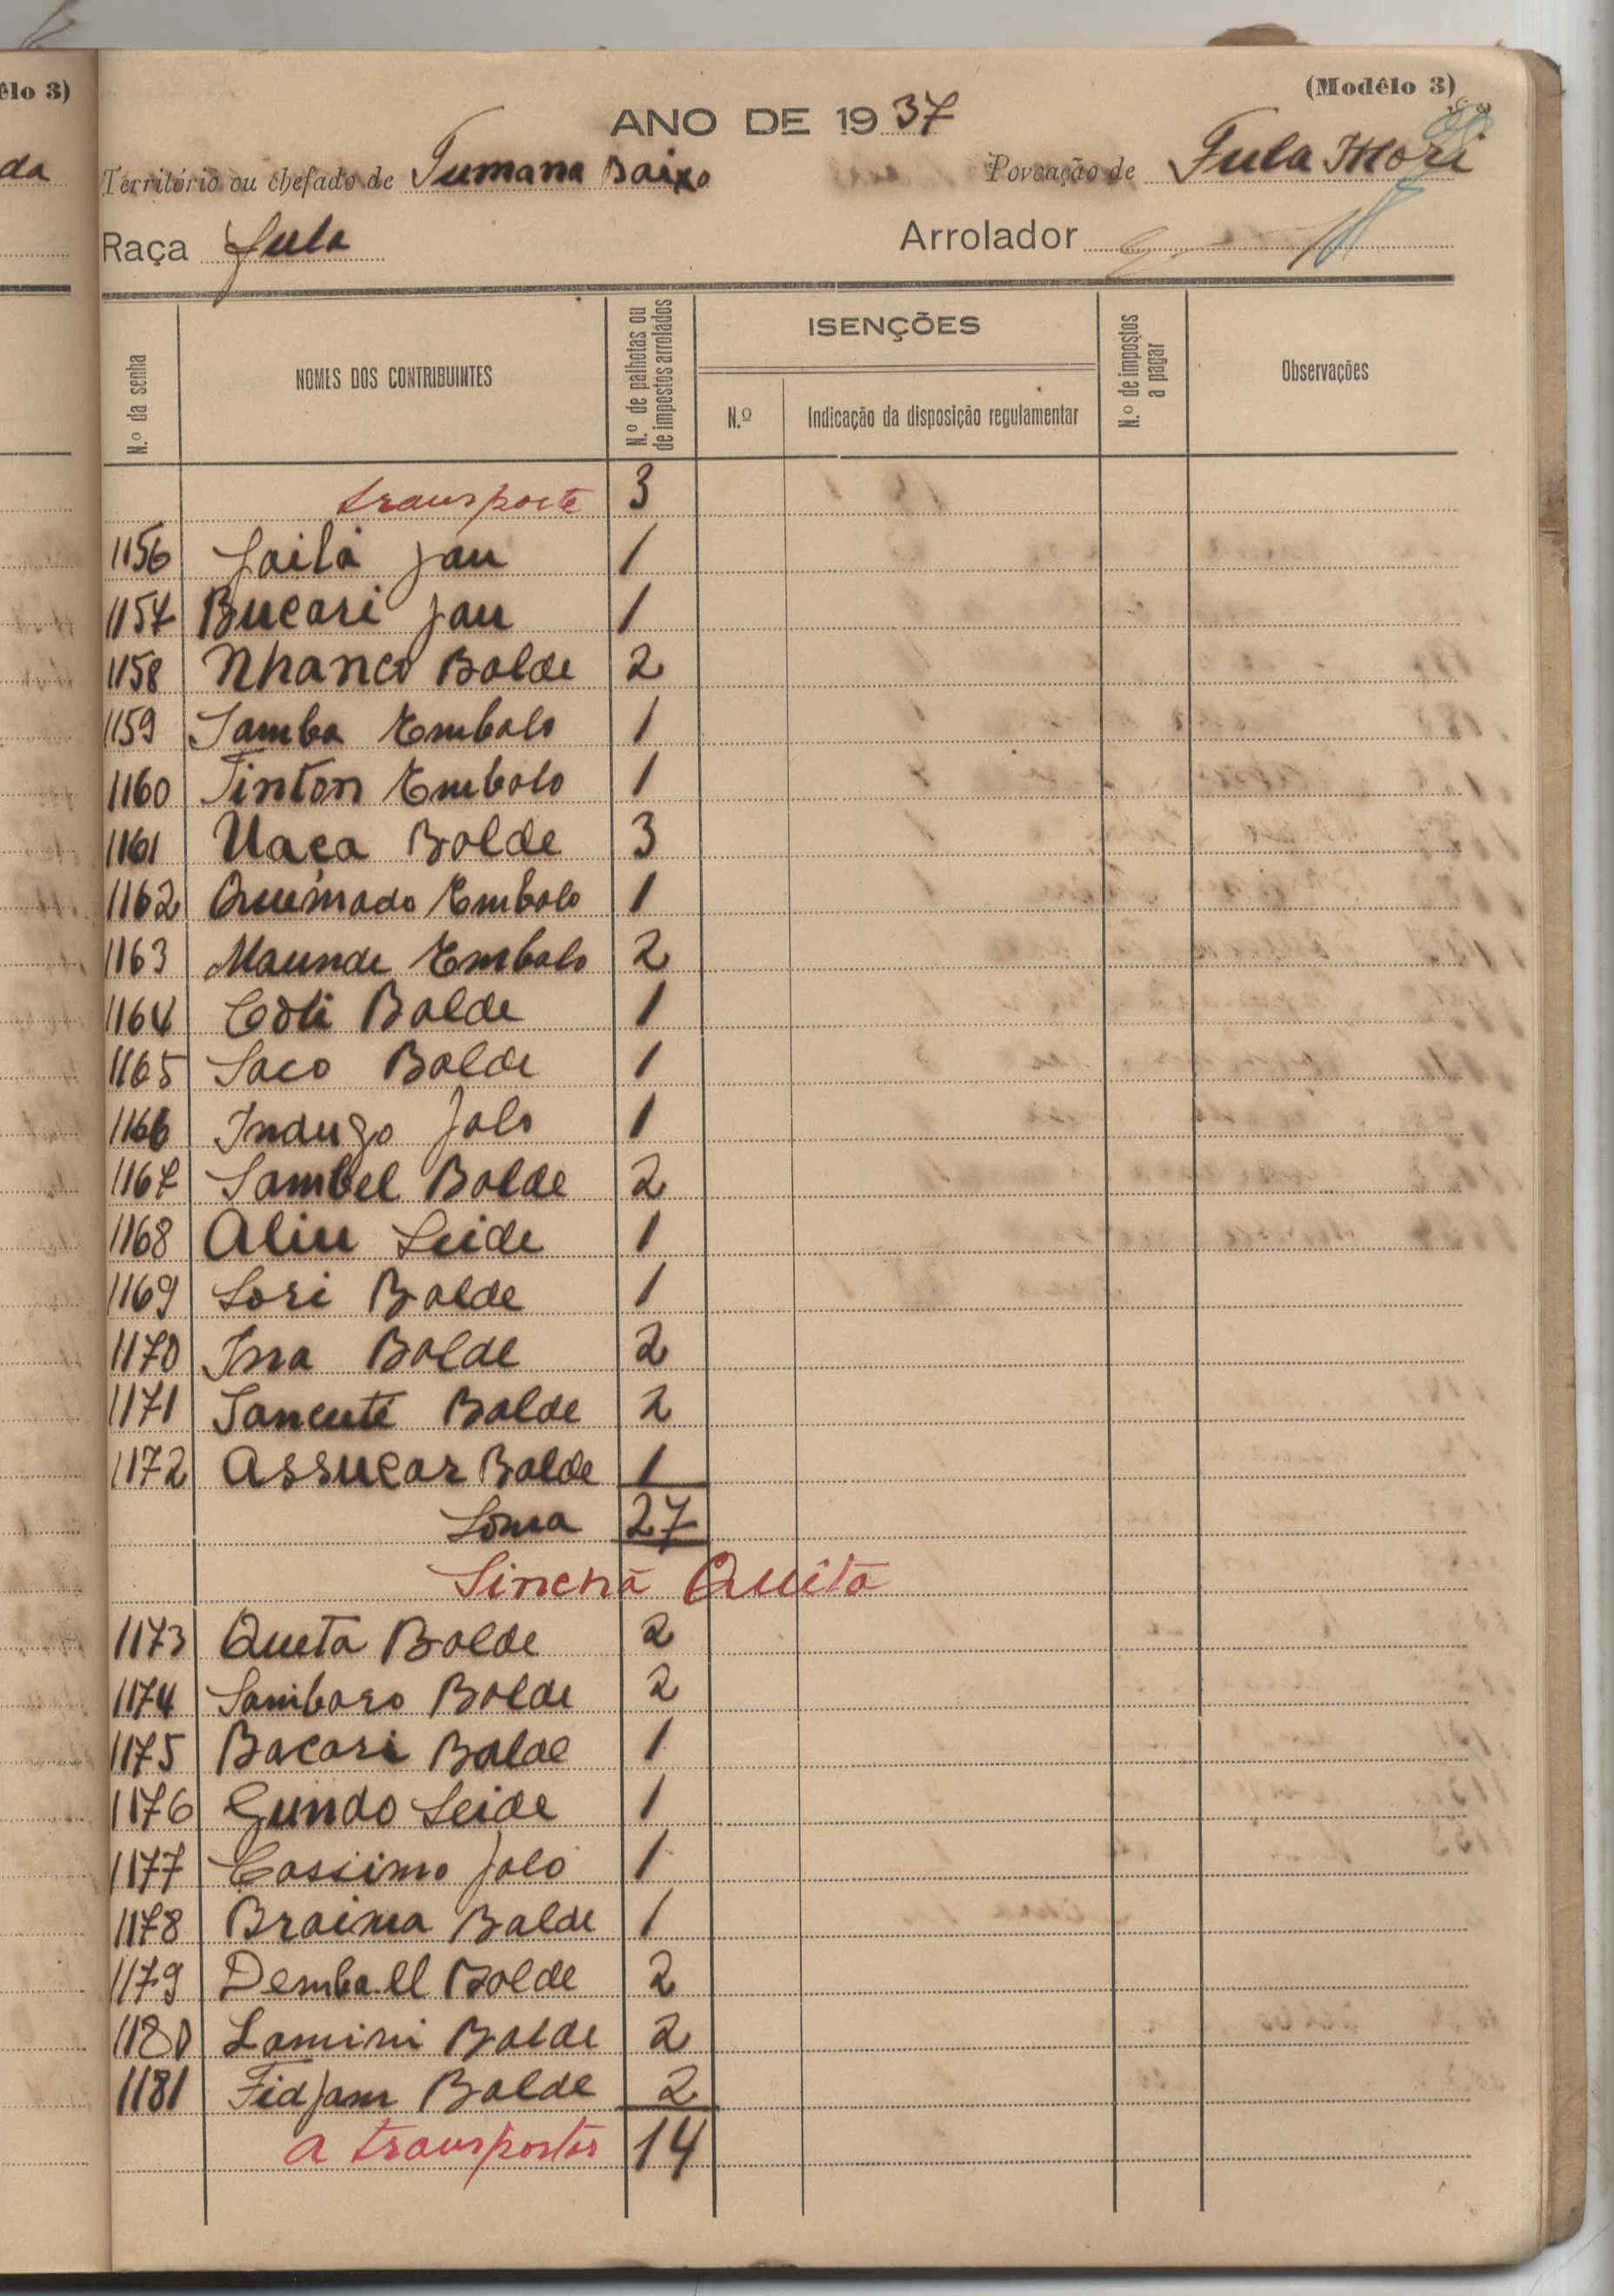 êlo 3)
da
(Modêlo 3)
ANO DE 19 37
Território ou chefado de Tumana Baixo Povoação de Fula Mori
Raça Fula Arrolador
N.º da senha
NOMES DOS CONTRIBUINTES
N.º de palhotas ou de impostos arrolados
ISENÇÕES
N.º
Indicação da disposição regulamentar
N.º de impostos a pagar
Observações
transporte 3
1156 Jailà Jau 1
1157 Bucari Jau 1
1158 Nhanco Balde 2
1159 Samba Embalo 1
1160 Tinton Embalo 1
1161 Uaça Balde 3
1162 Queimado Embalo 1
1163 Maunde Embalo 2
1164 Coli Balde 1
1165 Saco Balde 1
1166 Indugo Jalo 1
1167 Sambel Balde 2
1168 Aliu Seide 1
1169 Sori Balde 1
1170 Balde 2
1171 Sancuté Balde 2
1172 Assucar Balde 1
Soma 27
Sinchã Quitá
1173 Queta Balde 2
1174 Sambaro Balde 2
1175 Bacari Balde 1
1176 Gundo Seide 1
1177 Cassimo Jaló 1
1178 Braima Balde 1
1179 Demball Balde 2
1180 Lamini Balde 2
1181 Fidjam Balde 2
a transportar 14